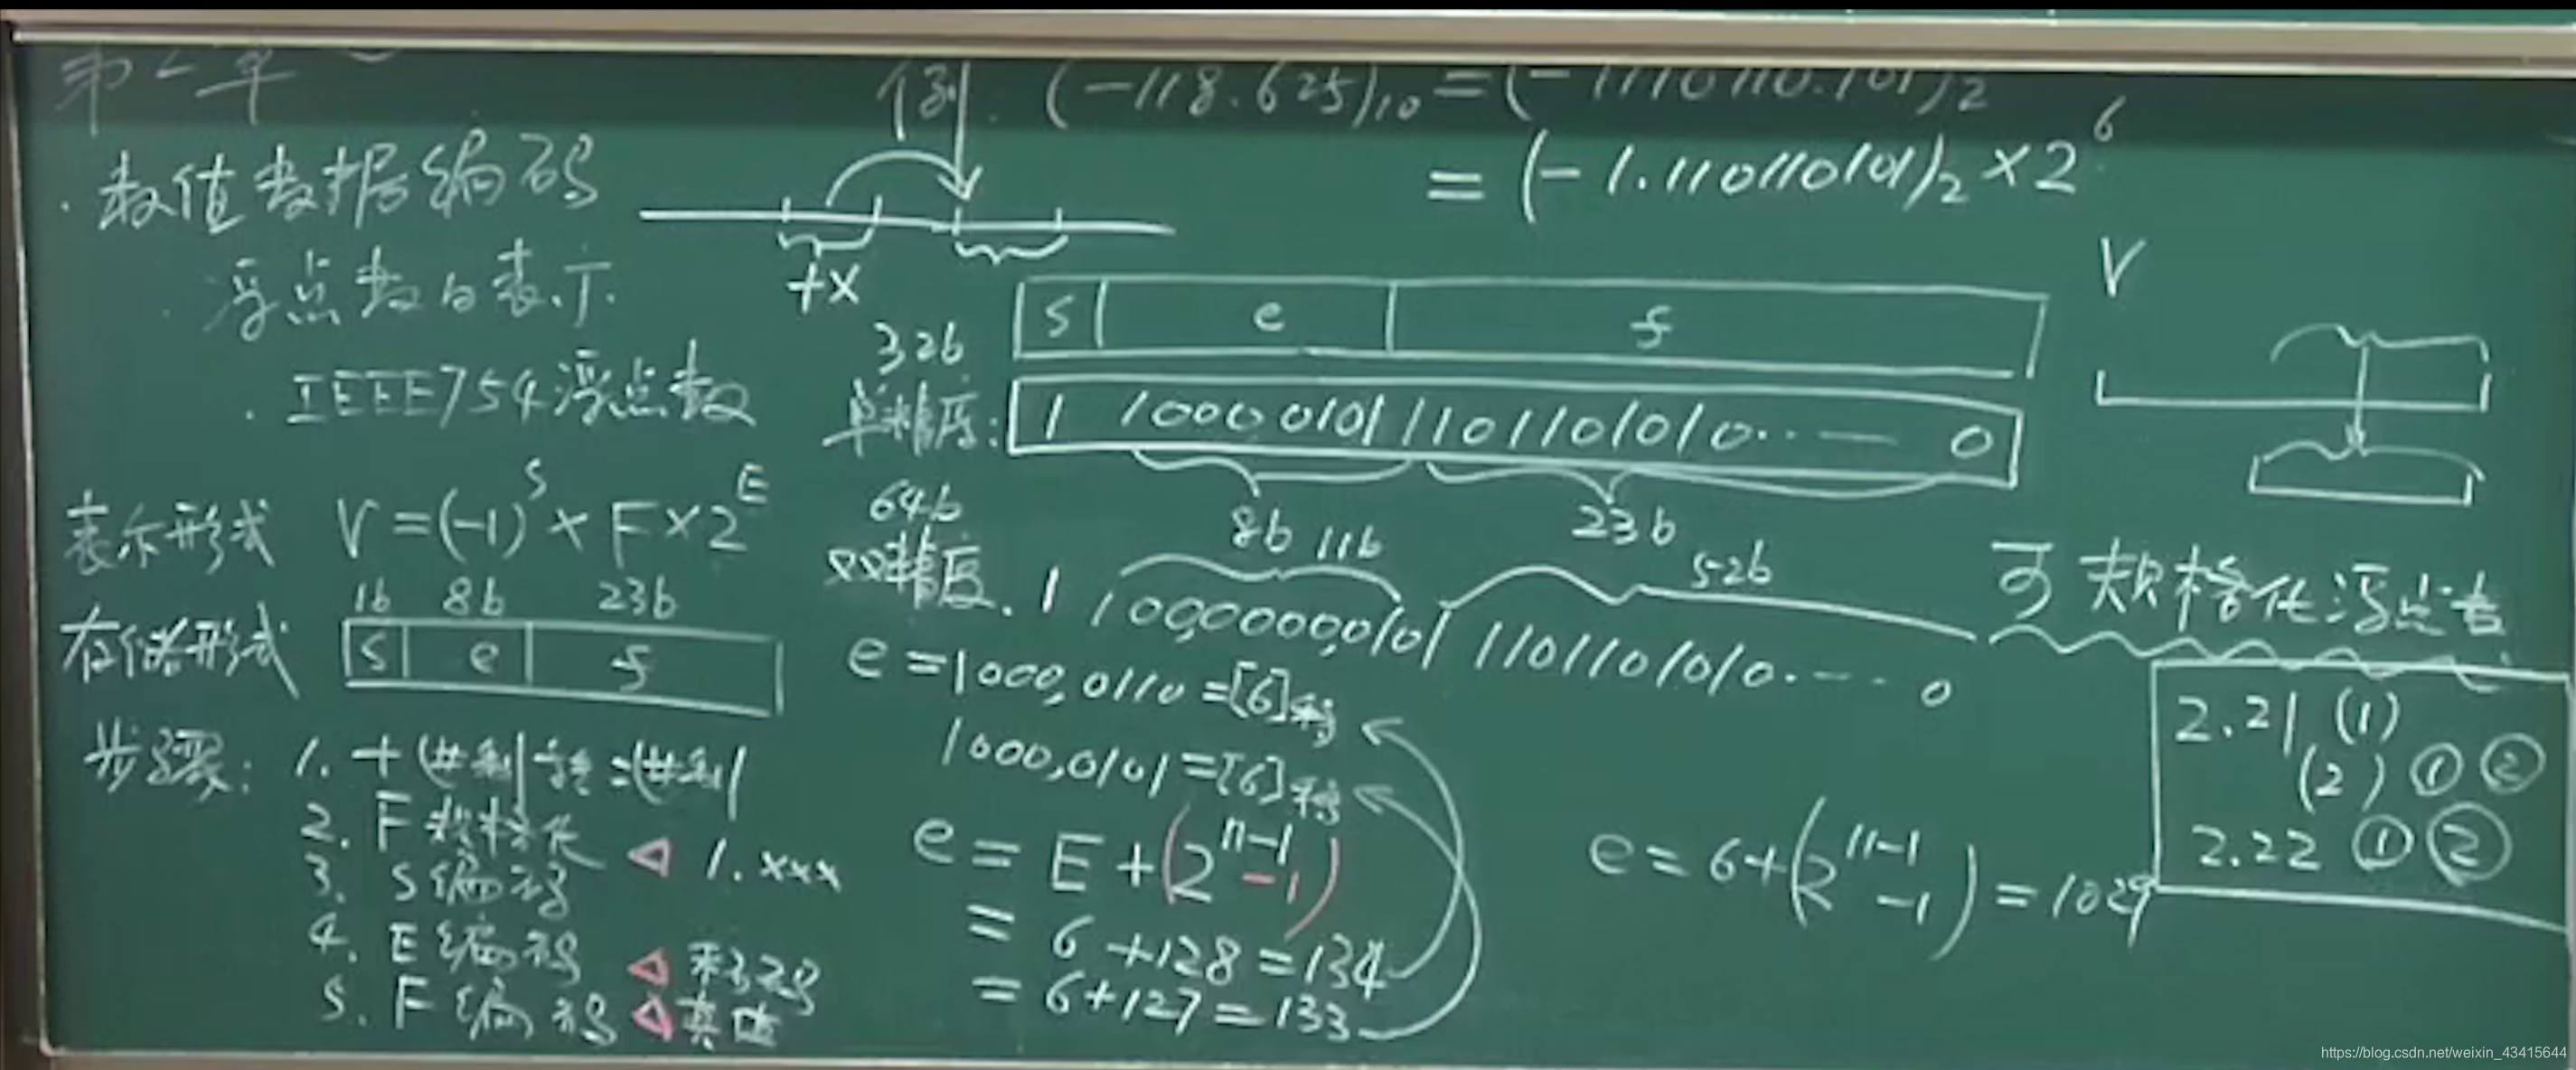 第二章
· 数值数据编码
· 浮点数的表示
· IEEE754浮点数
表示形式 V=(-1)^S × F×2^E
1b 8b 23b
存储形式 S e f
步骤: 1. 十进制转二进制
2. F规格化 ◁ 1.xxx
3. S编码
4. E编码 ◁ 移码
5. F编码 ◁ 真值
例. (-118.625)10=(-1110110.101)2
=(-1.110110101)2×2^6
+X
S e f
32b
单精度: 1 10000101 1101101010·· — 0
8b 23b
64b
双精度. 1 100,0000,0101 1101101010·--· 0
11b 52b
e=1000,0110=[6]移
1000,0101=[6]移
e=E+(2^n-1 -1)
=6+128=134
=6+127=133
V
可规格化浮点数
e=6+(2^11-1 -1)=1029
2.21 (1)
(2) ① ②
2.22 ① ②
https://blog.csdn.net/weixin_43415644